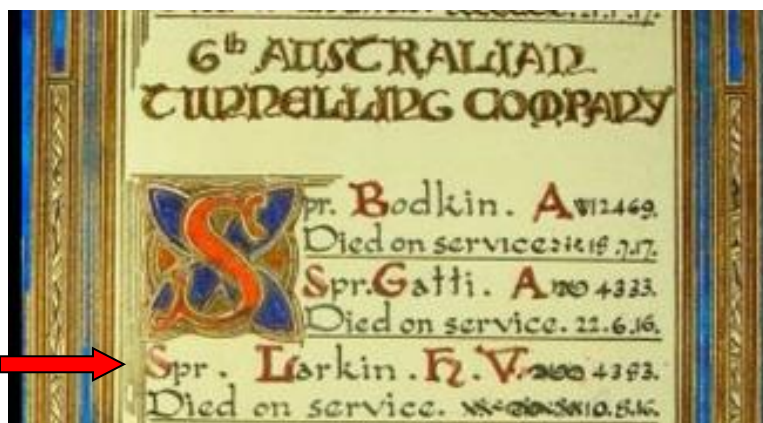 6th AUSTRALIAN
TUNNELLING COMPANY
Spr. Bodkin. A 12469.
Died on service 18.7.17.
Spr. Gatti. A No 4333.
Died on service. 22.6.16.
Spr. Larkin. H. V. 4393.
Died on service. 10.8.16.